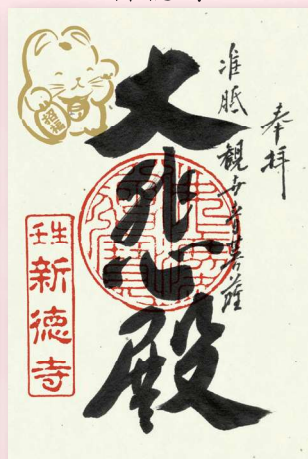 奉拝
准胝観世音菩薩
大悲殿
壬生
新徳寺